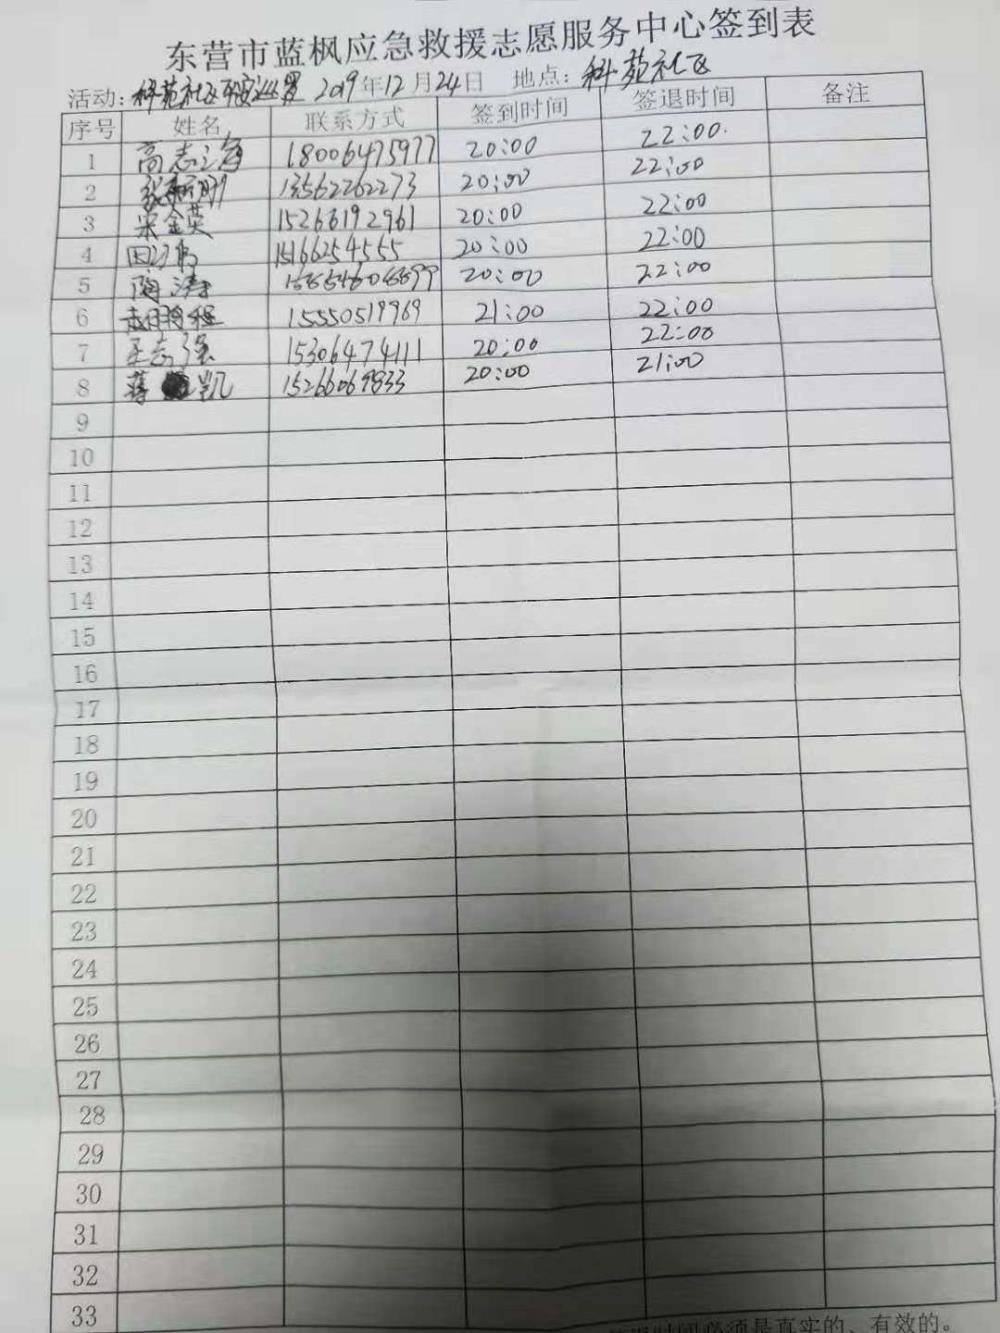 东营市蓝枫应急救援志愿服务中心签到表
活动：科苑社区平安巡逻 2019年12月24日 地点：科苑社区
序号 姓名 联系方式 签到时间 签退时间 备注
1 高志海 18006475977 20:00 22:00
2 13562262273 20:00 22:00
3 宋金英 15266192961 20:00 22:00
4 15166254555 20:00 22:00
5 陶涛 20:00 22:00
6 赵鹏程 15550519969 21:00 22:00
7 王志强 15306474111 20:00 22:00
8 蒋凯 15266069833 20:00 21:00
9
10
11
12
13
14
15
16
17
18
19
20
21
22
23
24
25
26
27
28
29
30
31
32
33
时间必须是真实的、有效的。